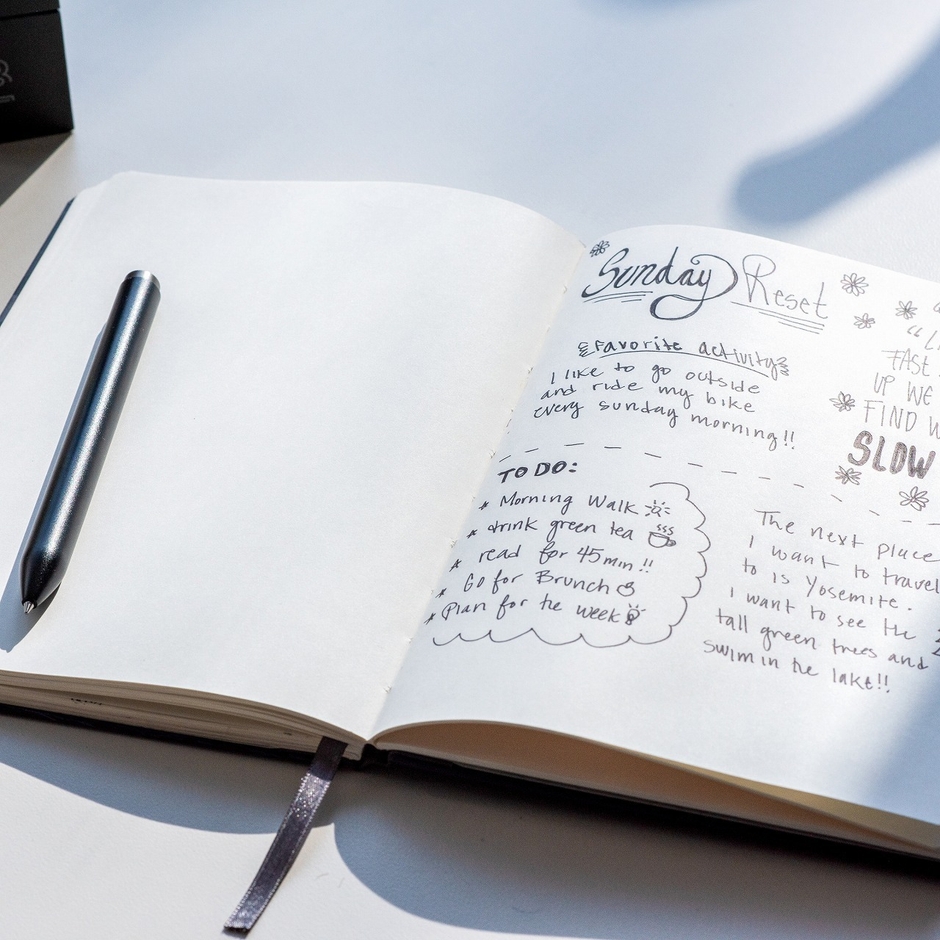 Sunday Reset
Favorite activity
I like to go outside
and ride my bike
every sunday morning!!
TO DO:
* Morning Walk
* drink green tea
* read for 45min!!
* Go for Brunch
* Plan for the week
"L
FAST
UP WE
FIND
SLOW
The next place
I want to travel
to is Yosemite.
I want to see the
tall green trees and
swim in the lake!!